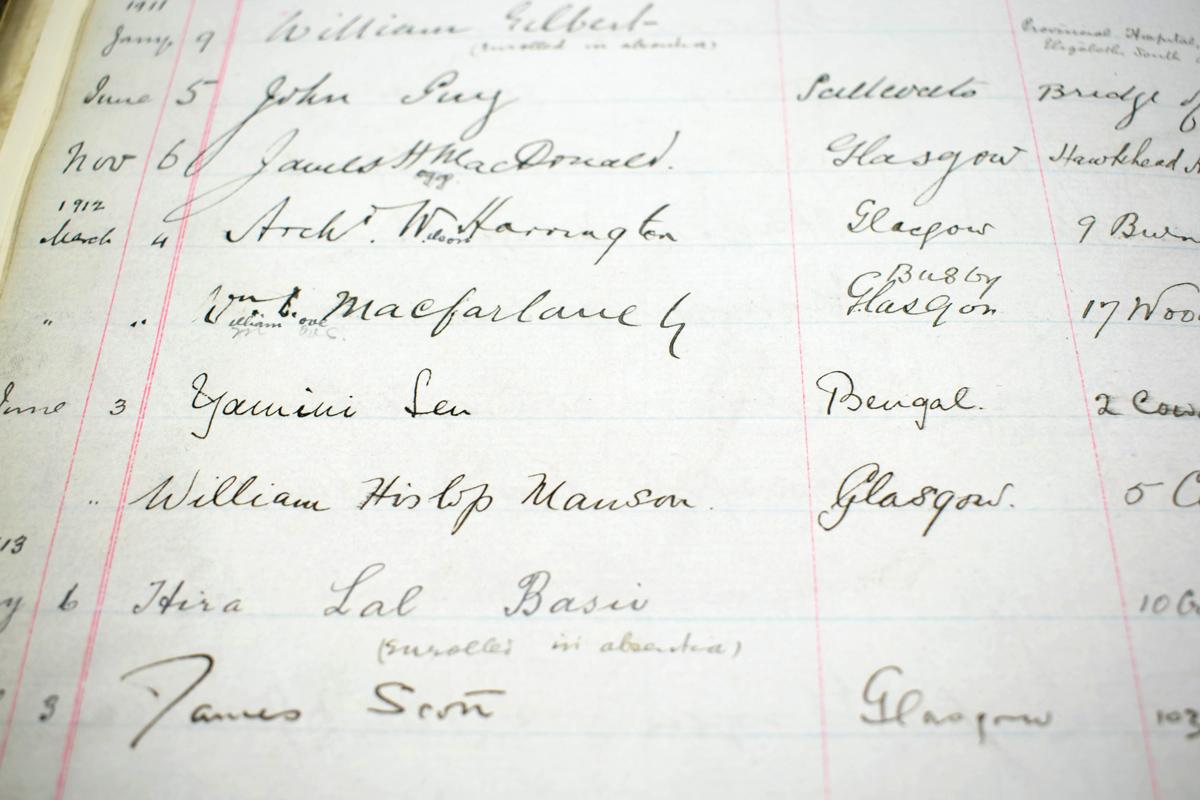 1911
Jany 9 William Gilbert Provincial Hospital
(Enrolled in absentia) Elizabeth South
June 5 John Guy Saltcoats Bridge of
Nov 6 James Hogg MacDonald. Glasgow Hawkhead
1912
March 4 Archd. Wilson Harrington Glasgow 9 Burn
Busby
" " Wm C. Macfarlane Glasgow 17 Woo
William
June 3 Yamini Sen Bengal. 2 Cow
" William Hislop Manson. Glasgow. 5 C
13
y 6 Hira Lal Basu 10 G
(Enrolled in absentia)
3 James Scott Glasgow 103